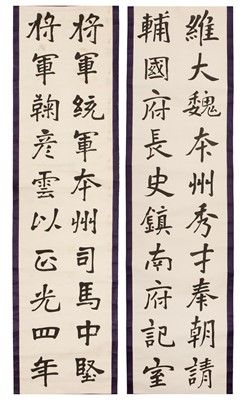 維大魏本州秀才奉朝請
輔國府長史鎮南府記室
将軍統軍本州司馬中堅
将軍鞠彦雲以正光四年